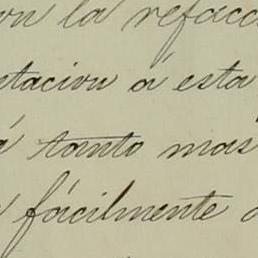 on la refacc
etacion á esta
á tanto mas
fácilmente